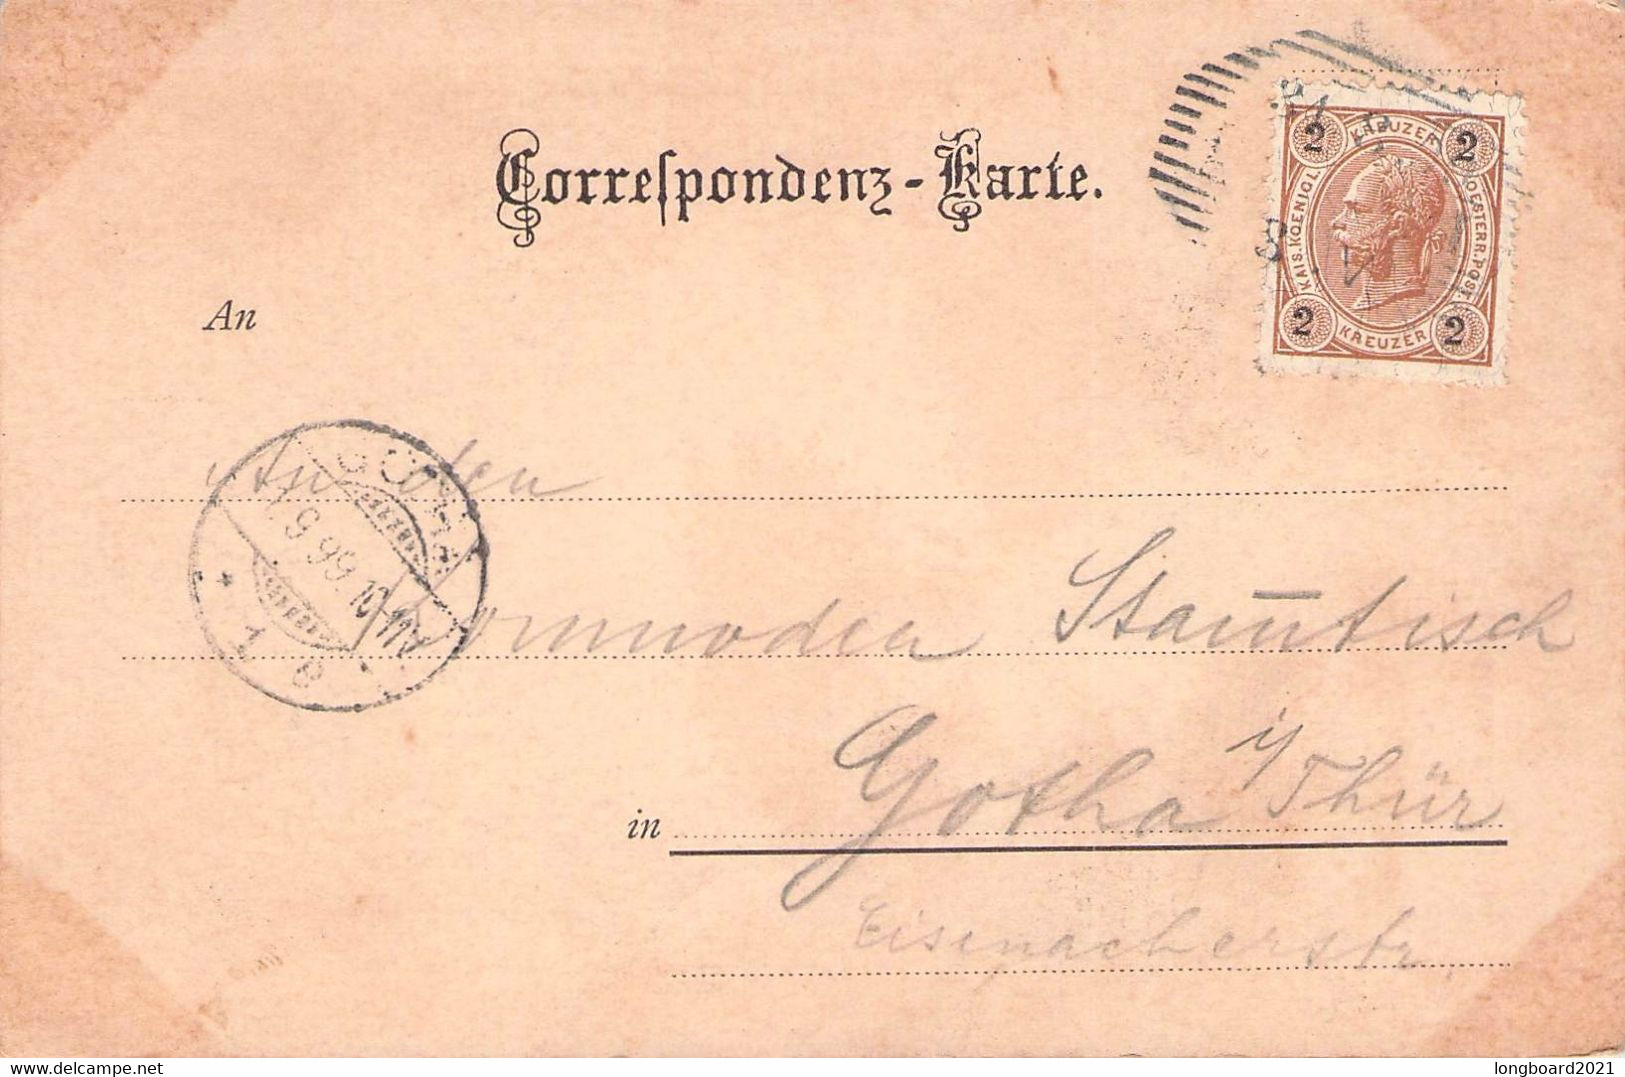 Correspondenz-Karte.
2 KREUZER 2
KAIS. KOENIGL.
OESTERR. POST.
2 KREUZER 2
An
An den
GOTHA
1.9.99.10-11V.
* 1 e *
Kommoden Stam̅tisch
Gotha i/Thür
in
Eisenacherstr.
delcampe.net
longboard2021